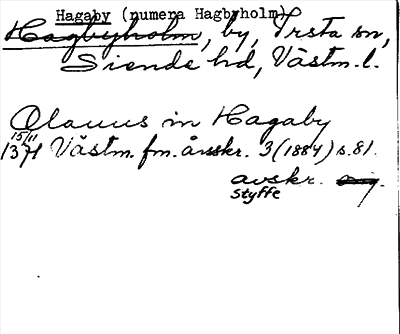 Hagaby (numera Hagbyholm)
Hagbyholm, by, Irsta sn,
Siende hd, Västm. l.
Olauus in Hagaby
15/11
1371 Västm. fm. årsskr. 3 (1884) s. 81.
avskr.
Styffe